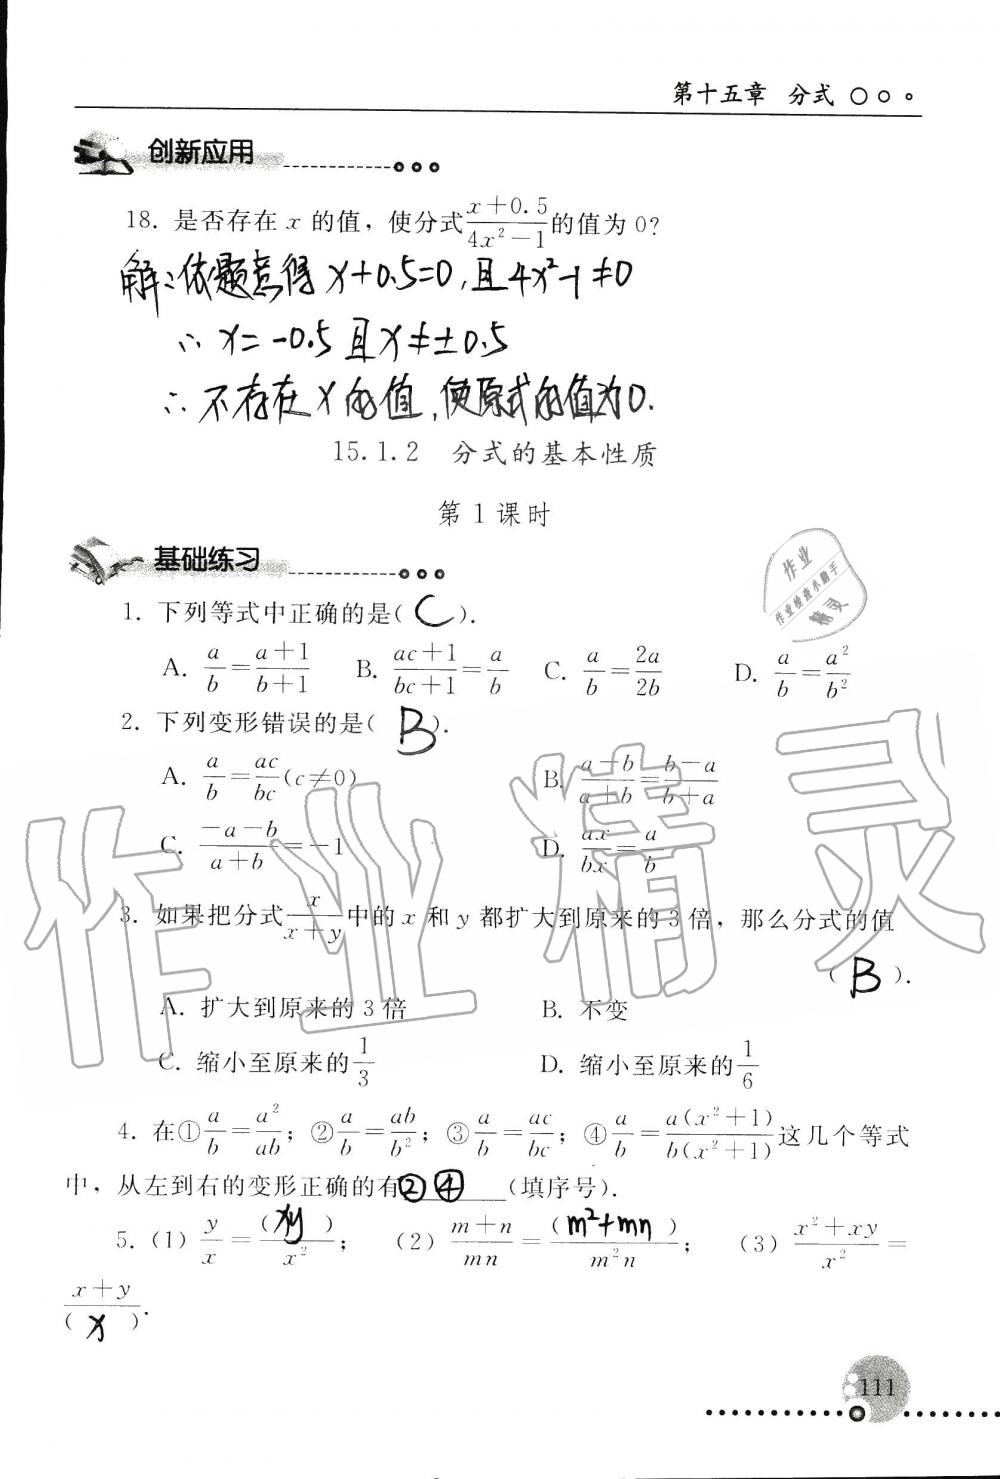 第十五章 分式
创新应用
18. 是否存在 x 的值，使分式\frac{x+0.5}{4x^2-1}的值为 0?
解:依题意得 x+0.5=0,且4x²-1≠0
∴ x=-0.5 且 x≠±0.5
∴ 不存在 x 的值,使原式的值为0.
15.1.2 分式的基本性质
第 1 课时
基础练习
1. 下列等式中正确的是( C ).
A. \frac{a}{b}=\frac{a+1}{b+1} B. \frac{ac+1}{bc+1}=\frac{a}{b} C. \frac{a}{b}=\frac{2a}{2b} D. \frac{a}{b}=\frac{a^2}{b^2}
2. 下列变形错误的是( B ).
A. \frac{a}{b}=\frac{ac}{bc}(c≠0) B. \frac{a-b}{a+b}=\frac{b-a}{b+a}
C. \frac{-a-b}{a+b}=-1 D. \frac{ax}{bx}=\frac{a}{b}
3. 如果把分式\frac{x}{x+y}中的 x 和 y 都扩大到原来的 3 倍，那么分式的值
( B ).
A. 扩大到原来的 3 倍 B. 不变
C. 缩小至原来的\frac{1}{3} D. 缩小至原来的\frac{1}{6}
4. 在①\frac{a}{b}=\frac{a^2}{ab}；②\frac{a}{b}=\frac{ab}{b^2}；③\frac{a}{b}=\frac{ac}{bc}；④\frac{a}{b}=\frac{a(x^2+1)}{b(x^2+1)}这几个等式
中，从左到右的变形正确的有②④（填序号）.
5. (1) \frac{y}{x}=\frac{( xy )}{x^2}； (2) \frac{m+n}{mn}=\frac{( m²+mn )}{m^2n}； (3) \frac{x^2+xy}{x^2}=
\frac{x+y}{( x )}.
111
作业
作业检查小助手
精灵
作业精灵